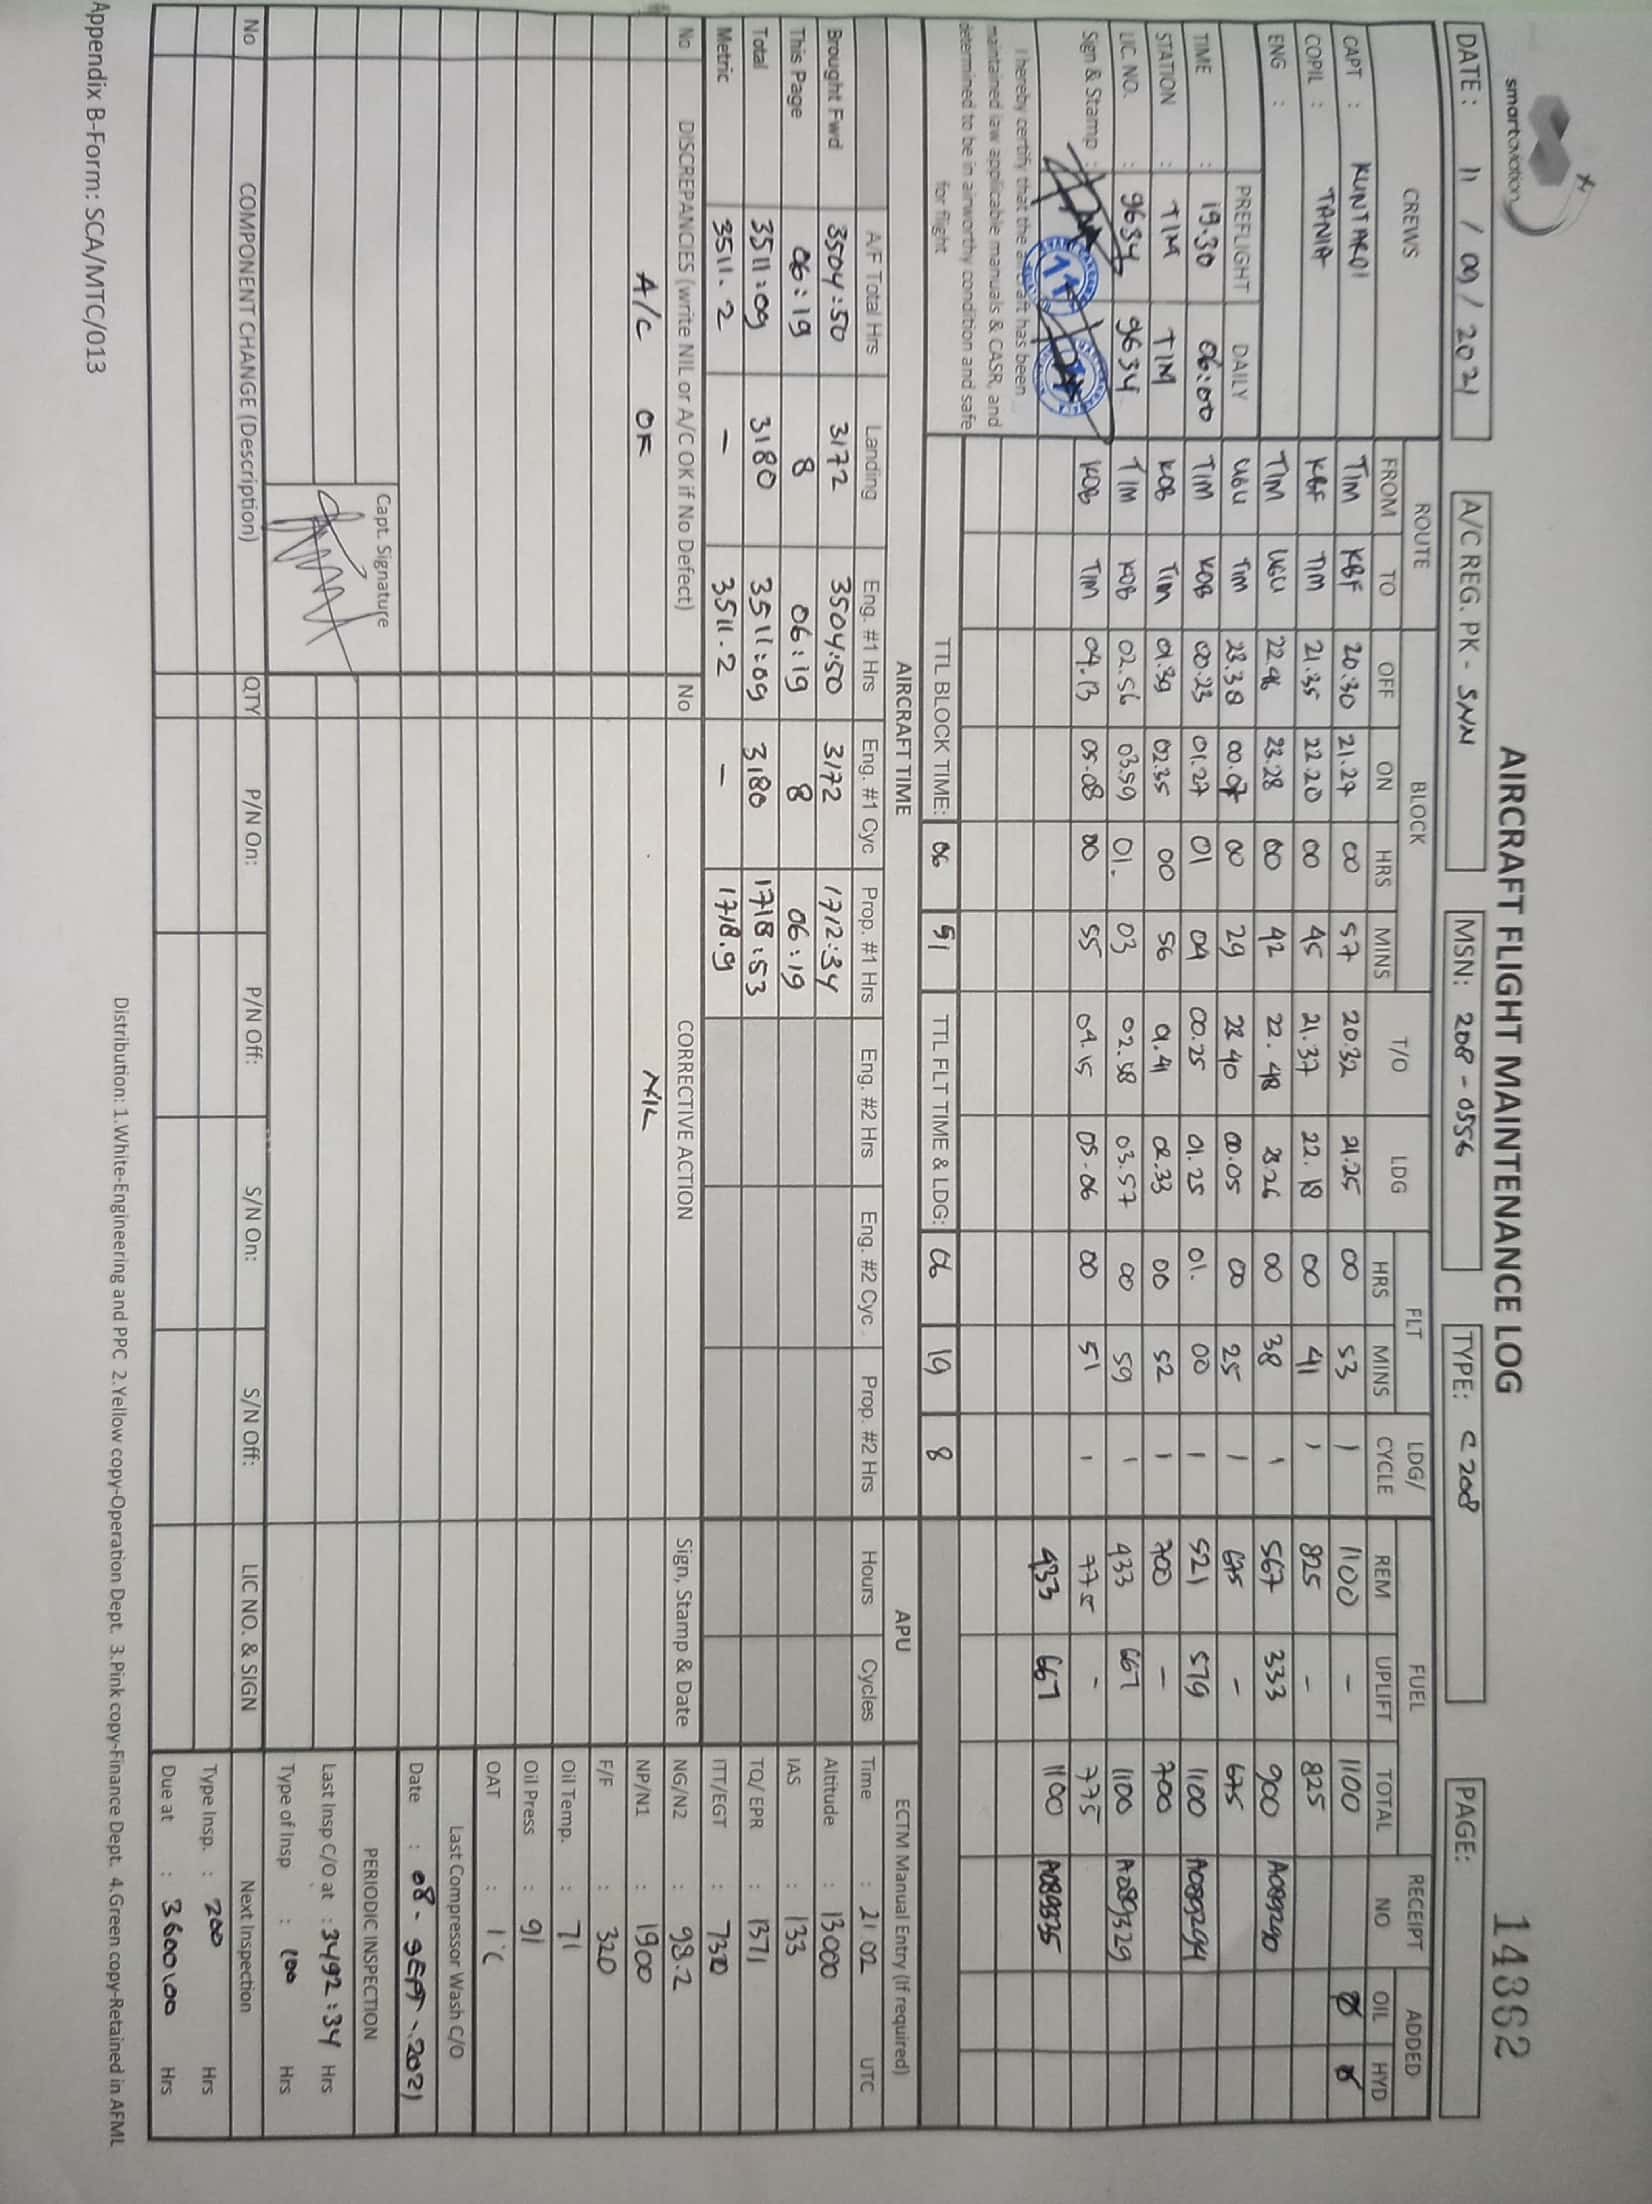 smartaviation
AIRCRAFT FLIGHT MAINTENANCE LOG
14362
DATE: 11 / 09 / 2021 A/C REG. PK - SNN MSN: 208 - 0556 TYPE: C 208 PAGE:
CREWS ROUTE BLOCK T/O LDG FLT LDG/ CYCLE FUEL RECEIPT NO ADDED
FROM TO OFF ON HRS MINS HRS MINS REM UPLIFT TOTAL OIL HYD
CAPT : KUNTARDI TIM KBF 20.30 21.27 00 57 20.32 21.25 00 53 1 1100 - 1100 0 0
COPIL : TANIA KBF TIM 21.35 22.20 00 45 21.37 22.18 00 41 1 825 - 825
ENG : TIM UGU 22.46 23.28 00 42 22.48 23.26 00 38 1 567 333 900 A089290
PREFLIGHT DAILY UGU TIM 23.38 00.07 00 29 23 40 00.05 00 25 1 675 - 675
TIME : 19.30 06:00 TIM KOB 00.23 01.27 01 04 00.25 01.25 01. 00 1 521 579 1100 A089294
STATION : TIM TIM KOB TIM 01.39 02.35 00 56 01.41 02.33 00 52 1 700 - 700
LIC. NO. : 9634 9634 TIM KOB 02.56 03.59 01. 03 02.58 03.57 00 59 1 433 667 1100 A089329
Sign & Stamp : KOB TIM 04.13 05.08 00 55 04.15 05.06 00 51 1 775 - 775
433 667 1100 A089335
I hereby certify that the aircraft has been
maintained iaw applicable manuals & CASR, and
determined to be in airworthy condition and safe
for flight
TTL BLOCK TIME: 06 51 TTL FLT TIME & LDG: 06 19 8
AIRCRAFT TIME APU ECTM Manual Entry (If required)
A/F Total Hrs Landing Eng. #1 Hrs Eng. #1 Cyc Prop. #1 Hrs Eng. #2 Hrs Eng. #2 Cyc Prop. #2 Hrs Hours Cycles Time : 21 02 UTC
Brought Fwd 3504:50 3172 3504:50 3172 1712:34 Altitude : 13000
This Page 06:19 8 06:19 8 06:19 IAS : 133
Total 3511:09 3180 3511:09 3180 1718:53 TQ/ EPR : 1371
Metric 3511.2 - 3511.2 - 1718.9 ITT/EGT : 730
No DISCREPANCIES (write NIL or A/C OK if No Defect) No CORRECTIVE ACTION Sign, Stamp & Date NG/N2 : 98.2
A/C OK NIL NP/N1 : 1900
F/F : 320
Oil Temp. : 71
Oil Press : 91
OAT : 1°C
Last Compressor Wash C/O
Date : 08 - SEPT - 2021
Capt. Signature
PERIODIC INSPECTION
Last Insp C/O at : 3492:34 Hrs
Type of Insp : 100 Hrs
No COMPONENT CHANGE (Description) QTY P/N On: P/N Off: S/N On: S/N Off: LIC NO. & SIGN Next Inspection
Type Insp. : 200 Hrs
Due at : 3600:00 Hrs
Distribution: 1.White-Engineering and PPC 2.Yellow copy-Operation Dept. 3.Pink copy-Finance Dept. 4.Green copy-Retained in AFML
Appendix B-Form: SCA/MTC/013